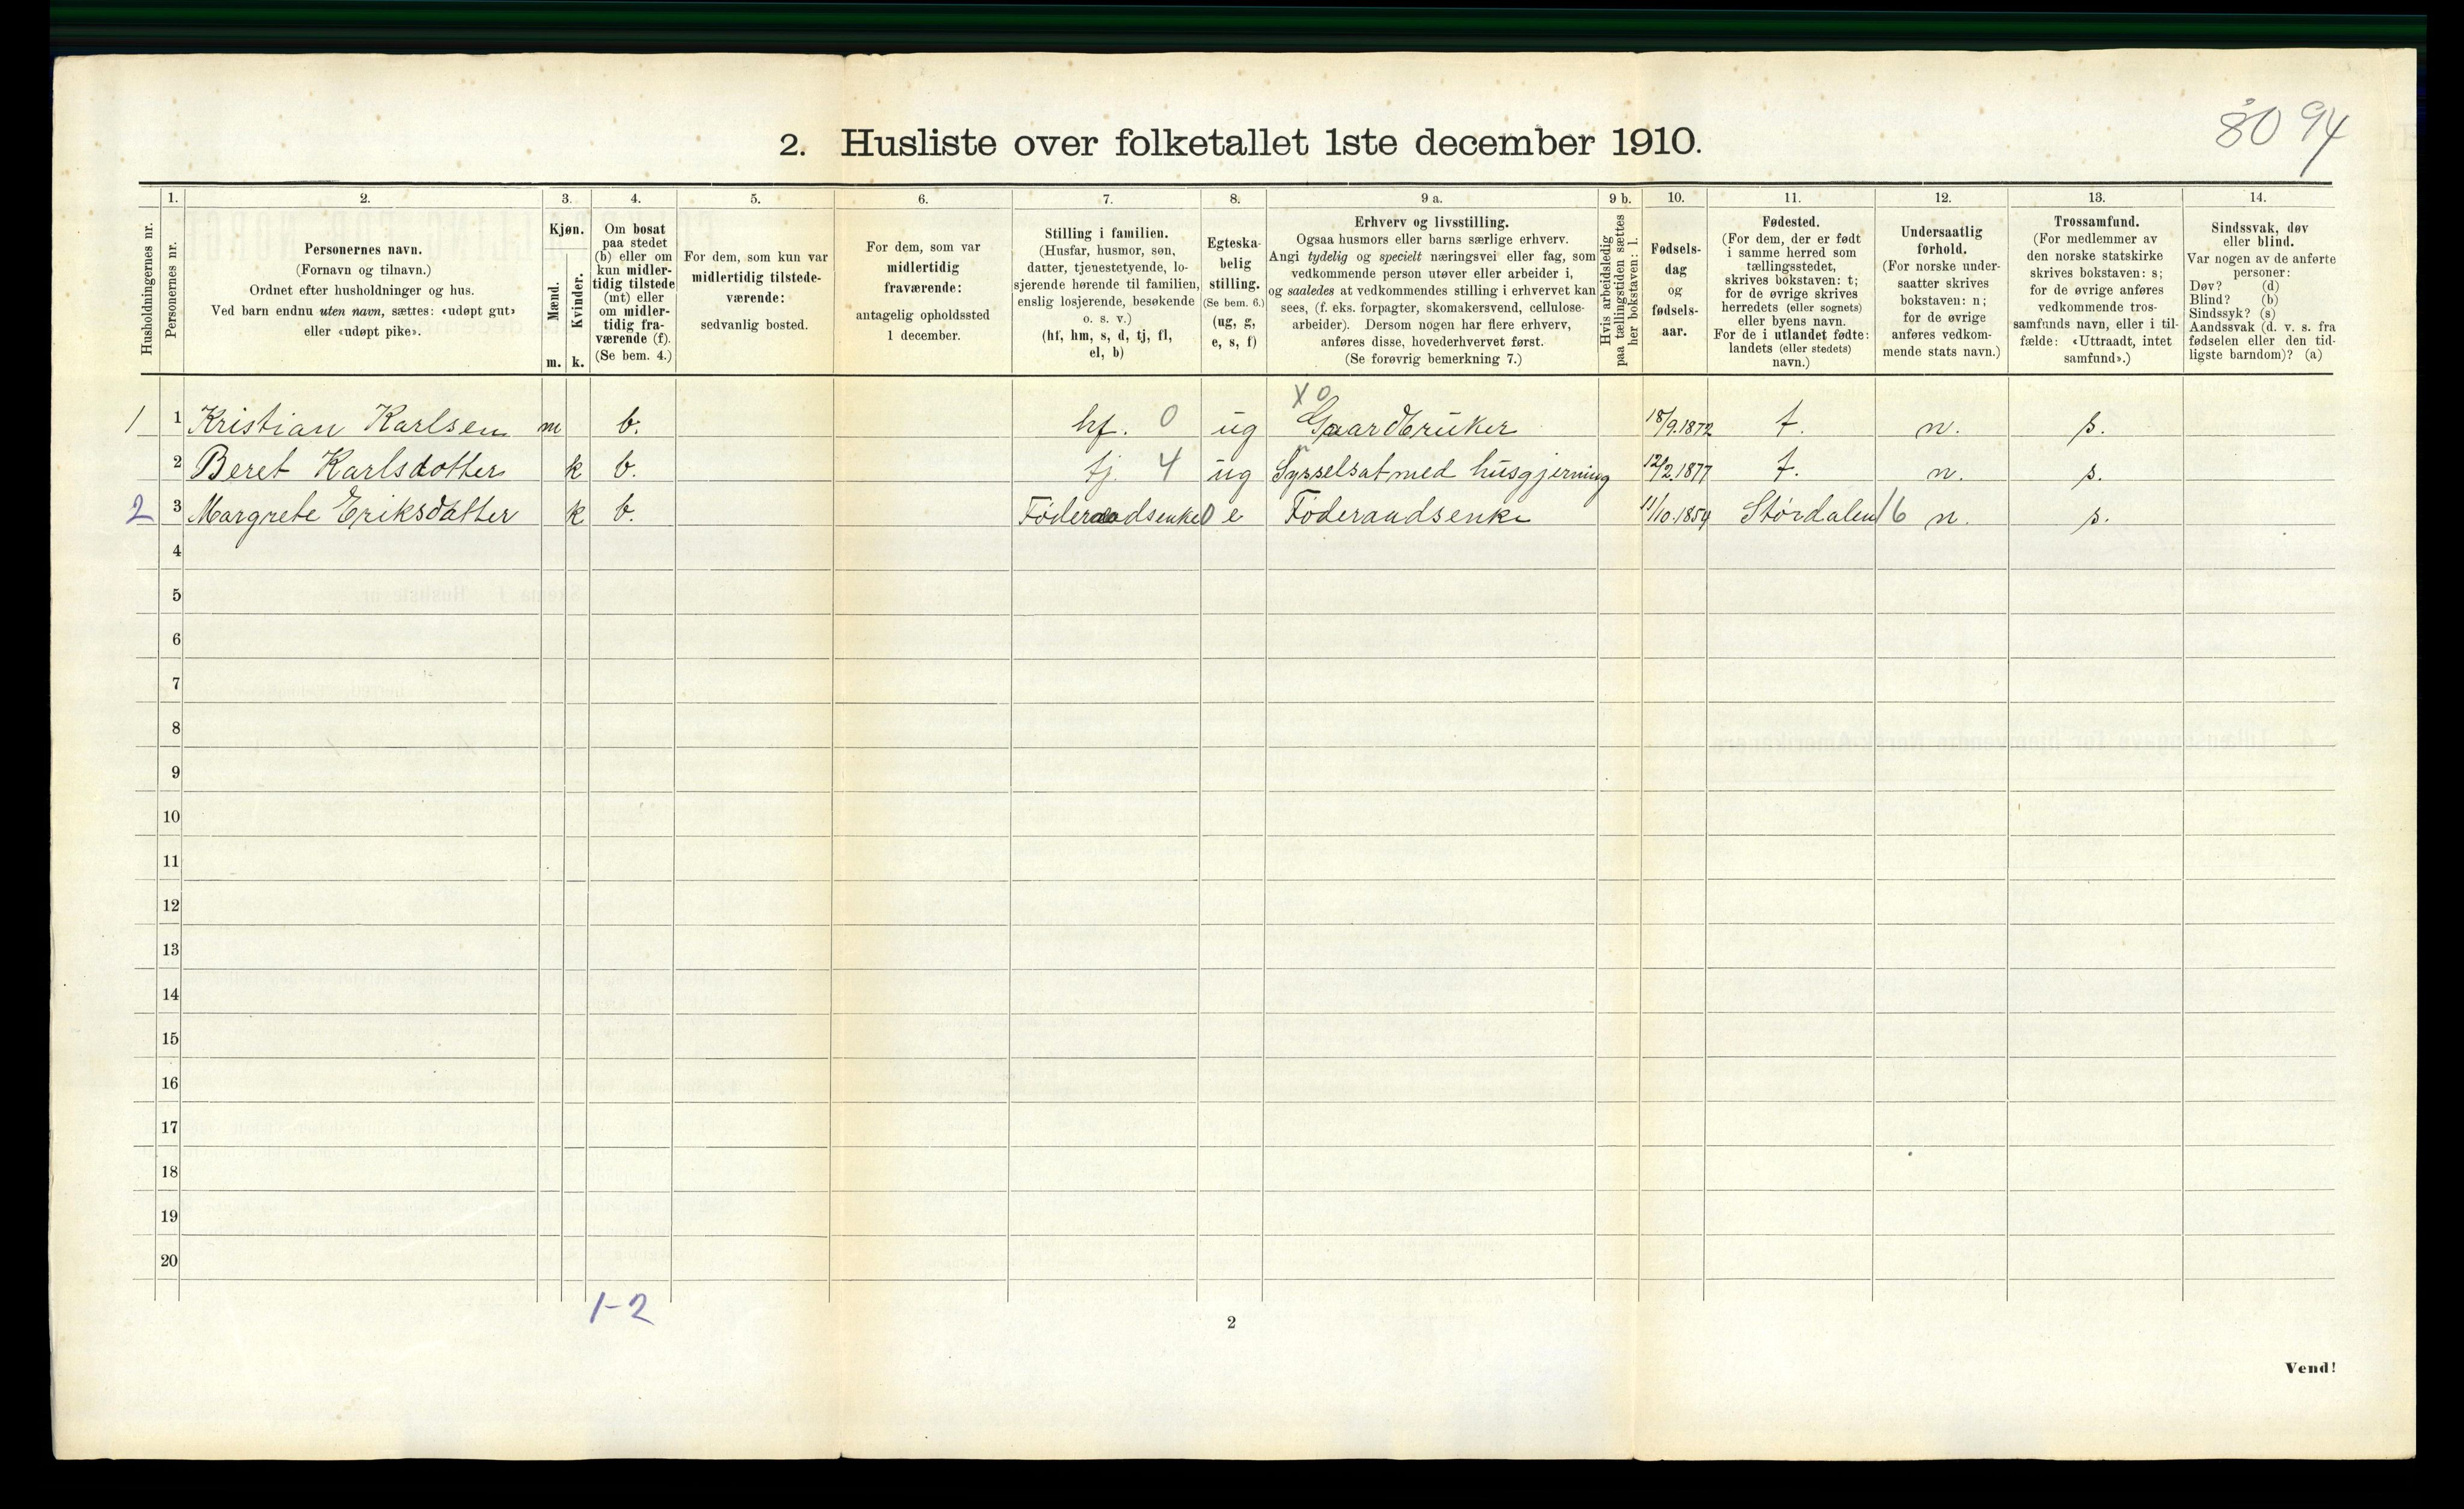 8094
2. Husliste over folketallet 1ste december 1910.
Husholdningernes nr.
1.
Personernes nr.
2.
Personernes navn.
(Fornavn og tilnavn.)
Ordnet efter husholdninger og hus.
Ved barn endnu uten navn, sættes: «udøpt gut»
eller «udøpt pike».
3.
Kjøn.
Mænd.
Kvinder.
m. k.
4.
Om bosat
paa stedet
(b) eller om
kun midler-
tidig tilstede
(mt) eller
om midler-
tidig fra-
værende (f).
(Se bem. 4.)
5.
For dem, som kun var
midlertidig tilstede-
værende:
sedvanlig bosted.
6.
For dem, som var
midlertidig
fraværende:
antagelig opholdssted
1 december.
7.
Stilling i familien.
(Husfar, husmor, søn,
datter, tjenestetyende, lo-
sjerende hørende til familien,
enslig losjerende, besøkende
o. s. v.)
(hf, hm, s, d, tj, fl,
el, b)
8.
Egteska-
belig
stilling.
(Se bem. 6.)
(ug, g,
e, s, f)
9 a.
Erhverv og livsstilling.
Ogsaa husmors eller barns særlige erhverv.
Angi tydelig og specielt næringsvei eller fag, som
vedkommende person utøver eller arbeider i,
og saaledes at vedkommendes stilling i erhvervet kan
sees, (f. eks. forpagter, skomakersvend, cellulose-
arbeider). Dersom nogen har flere erhverv,
anføres disse, hovederhvervet først.
(Se forøvrig bemerkning 7.)
9 b.
Hvis arbeidsledig
paa tællingstiden sættes
her bokstaven: l.
10.
Fødsels-
dag
og
fødsels-
aar.
11.
Fødested.
(For dem, der er født
i samme herred som
tællingsstedet,
skrives bokstaven: t;
for de øvrige skrives
herredets (eller sognets)
eller byens navn.
For de i utlandet fødte:
landets (eller stedets)
navn.)
12.
Undersaatlig
forhold.
(For norske under-
saatter skrives
bokstaven: n;
for de øvrige
anføres vedkom-
mende stats navn.)
13.
Trossamfund.
(For medlemmer av
den norske statskirke
skrives bokstaven: s;
for de øvrige anføres
vedkommende tros-
samfunds navn, eller i til-
fælde: «Uttraadt, intet
samfund».)
14.
Sindssvak, døv
eller blind.
Var nogen av de anførte
personer:
Døv? (d)
Blind? (b)
Sindssyk? (s)
Aandssvak (d. v. s. fra
fødselen eller den tid-
ligste barndom)? (a)
X 0
1 1 Kristian Karlsen m b. hf. 0 ug Gaardbruker 18/9.1872 t. n. s.
2 Beret Karlsdotter k b. tj. 4 ug Sysselsat med husgjerning 12/2.1877 t. n. s.
2 3 Margrete Eriksdatter k b. Føderaadsenke 0 e Føderaadsenke 11/10.1854 Størdalen 16 n. s.
4
5
6
7
8
9
10
11
12
13
14
15
16
17
18
19
20
1-2
2
Vend!